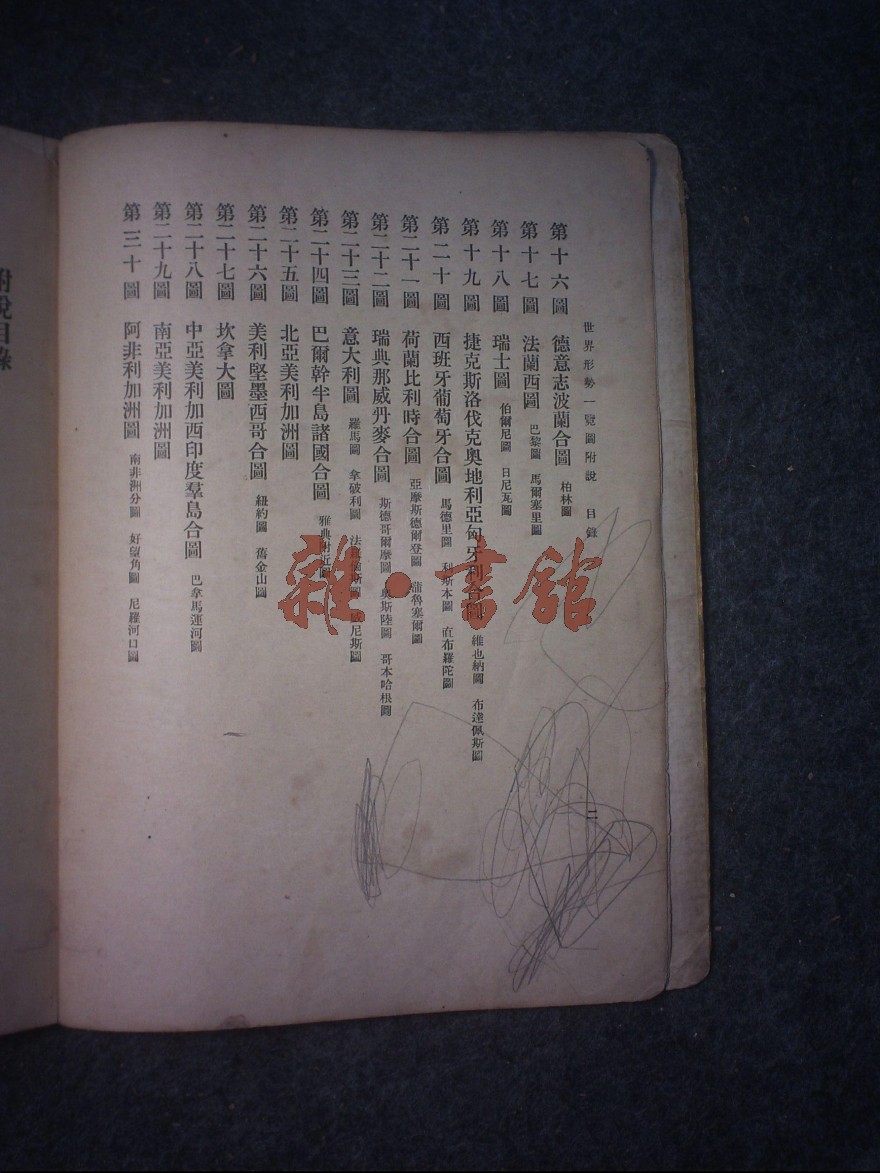 世界形勢一覽圖附說 目錄 二
第十六圖 德意志波蘭合圖 柏林圖
第十七圖 法蘭西圖 巴黎圖 馬爾塞里圖
第十八圖 瑞士圖 伯爾尼圖 日尼瓦圖
第十九圖 捷克斯洛伐克奧地利亞匈牙利合圖 維也納圖 布達佩斯圖
第二十圖 西班牙葡萄牙合圖 馬德里圖 利斯本圖 直布羅陀圖
第二十一圖 荷蘭比利時合圖 亞摩斯德爾登圖 蒲魯塞爾圖
第二十二圖 瑞典那威丹麥合圖 斯德哥爾摩圖 奧斯陸圖 哥本哈根圖
第二十三圖 意大利圖 羅馬圖 拿破利圖 威尼斯圖
第二十四圖 巴爾幹半島諸國合圖 雅典附近圖
第二十五圖 北亞美利加洲圖
第二十六圖 美利堅墨西哥合圖 紐約圖 舊金山圖
第二十七圖 坎拿大圖
第二十八圖 中亞美利加西印度羣島合圖 巴拿馬運河圖
第二十九圖 南亞美利加洲圖
第三十圖 阿非利加洲圖 南非洲分圖 好望角圖 尼羅河口圖
附說目錄
雜·書館